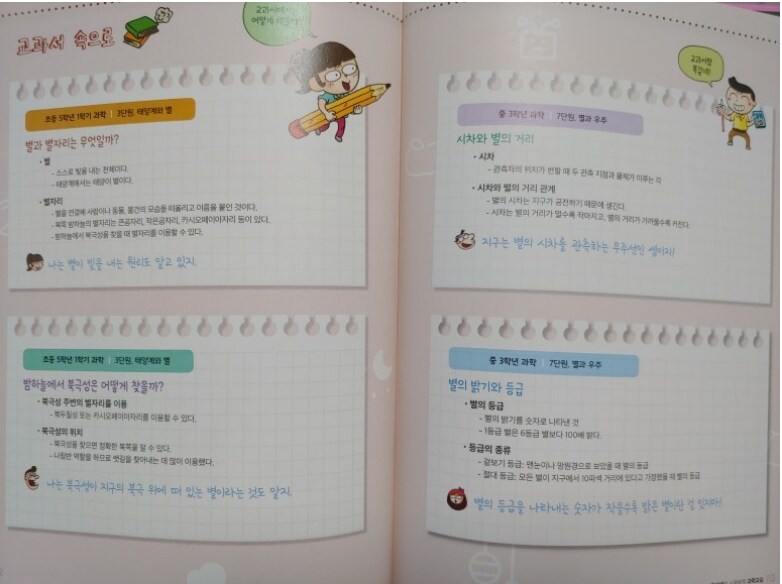 교과서 속으로
초등 5학년 1학기 과학 | 3단원. 태양계와 별
별과 별자리는 무엇일까?
• 별
- 스스로 빛을 내는 천체이다.
- 태양계에서는 태양이 별이다.
• 별자리
- 별을 연결해 사람이나 동물, 물건의 모습을 떠올리고 이름을 붙인 것이다.
- 북쪽 밤하늘의 별자리는 큰곰자리, 작은곰자리, 카시오페이아자리 등이 있다.
- 밤하늘에서 북극성을 찾을 때 별자리를 이용할 수 있다.
나는 별이 빛을 내는 원리도 알고 있지.
초등 5학년 1학기 과학 | 3단원. 태양계와 별
밤하늘에서 북극성은 어떻게 찾을까?
• 북극성 주변의 별자리를 이용
- 북두칠성 또는 카시오페이아자리를 이용할 수 있다.
• 북극성의 위치
- 북극성을 찾으면 정확한 북쪽을 알 수 있다.
- 나침반 역할을 하므로 뱃길을 찾아내는 데 많이 이용했다.
나는 북극성이 지구의 북극 위에 떠 있는 별이라는 것도 알지.
교과서랑
똑같네!
중 3학년 과학 | 7단원. 별과 우주
시차와 별의 거리
• 시차
- 관측자의 위치가 변할 때 두 관측 지점과 물체가 이루는 각
• 시차와 별의 거리 관계
- 별의 시차는 지구가 공전하기 때문에 생긴다.
- 시차는 별의 거리가 멀수록 작아지고, 별의 거리가 가까울수록 커진다.
지구는 별의 시차를 관측하는 우주선인 셈이지!
중 3학년 과학 | 7단원. 별과 우주
별의 밝기와 등급
• 별의 등급
- 별의 밝기를 숫자로 나타낸 것
- 1등급 별은 6등급 별보다 100배 밝다.
• 등급의 종류
- 겉보기 등급: 맨눈이나 망원경으로 보았을 때 별의 등급
- 절대 등급: 모든 별이 지구에서 10파섹 거리에 있다고 가정했을 때 별의 등급
별의 등급을 나타내는 숫자가 작을수록 밝은 별이란 걸 잊지마!